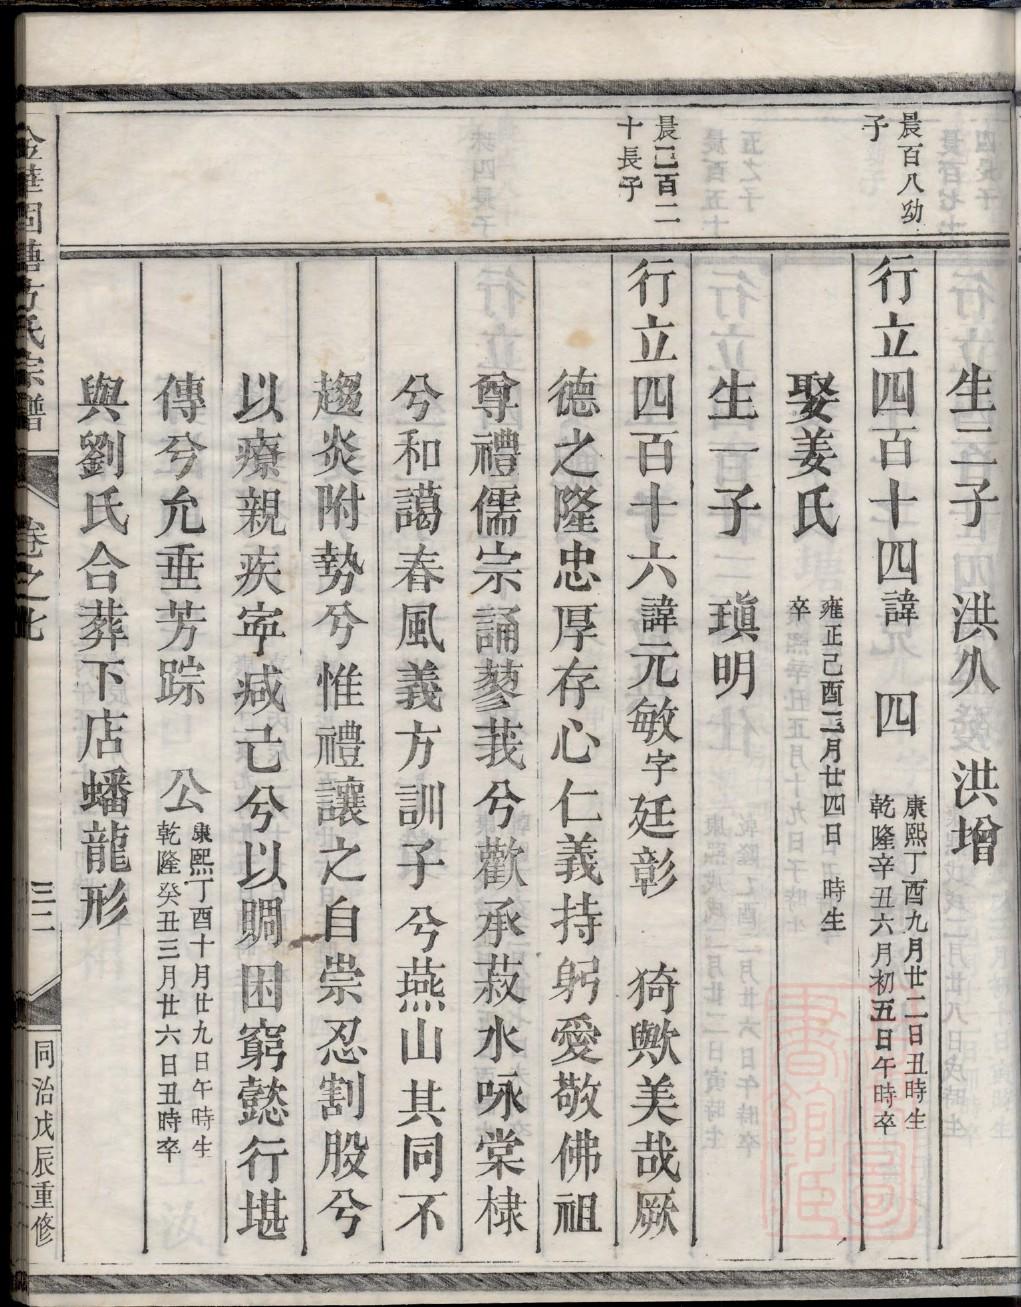 生二子 洪久 洪增
晨百八幼
子
行立四百十四諱元四
康熙丁酉九月廿二日丑時生
乾隆辛丑六月初五日午時卒
娶姜氏
雍正己酉三月廿四日 時生
卒
生一子 瑱明
晨二百二
十長子
行立四百十六諱元敏字廷彰 猗歟美哉厥
德之隆忠厚存心仁義持躬愛敬佛祖
尊禮儒宗誦蓼莪兮歡承菽水咏棠棣
兮和藹春風義方訓子兮燕山其同不
趨炎附勢兮惟禮讓之自崇忍割股兮
以療親疾寜減己兮以賙困窮懿行堪
傳兮允垂芳踪 公
康熙丁酉十月廿九日午時生
乾隆癸丑三月廿六日丑時卒
與劉氏合葬下店蟠龍形
方氏宗譜
卷之
三二
同治戊辰重修